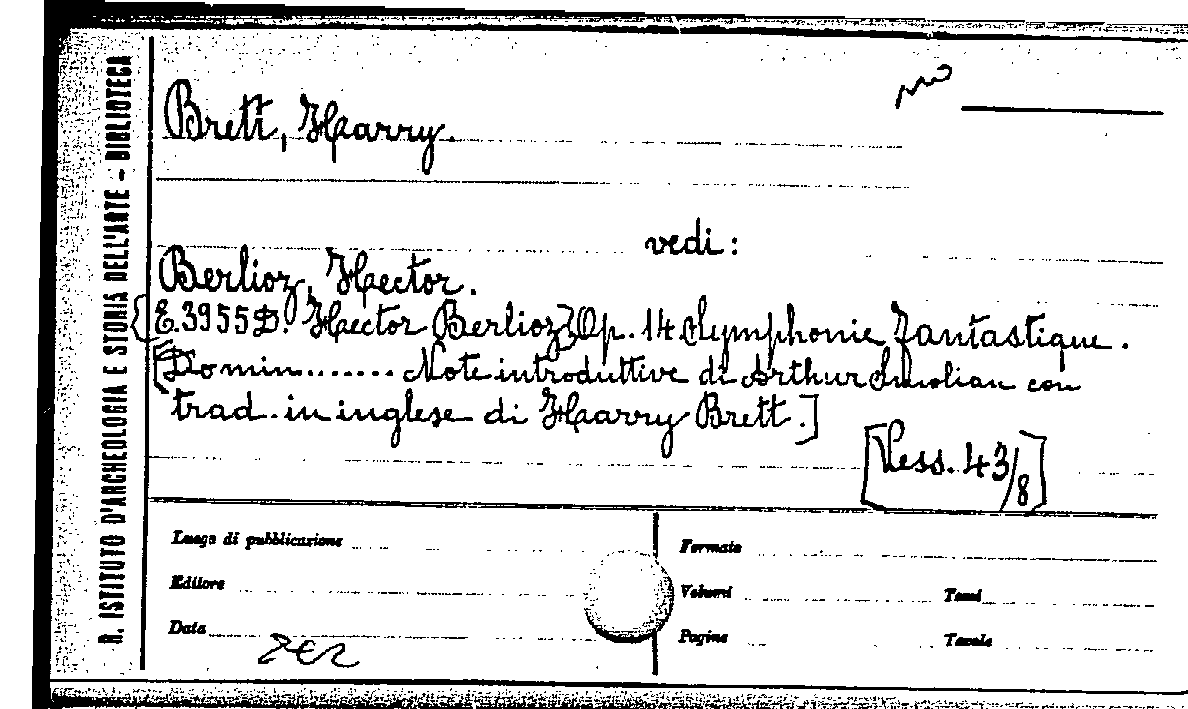 R. ISTITUTO D'ARCHEOLOGIA E STORIA DELL'ARTE - BIBLIOTECA
Brett, Harry.
vedi:
Berlioz, Hector.
[E.3955D. Hector Berlioz] Op. 14. Symphonie Fantastique.
[Domin........ Note introduttive di Arthur Smolian con
trad. in inglese di Harry Brett.]
[Vess. 43/8]
Luogo di pubblicazione
Formato
Editore
Volumi
Tomi
Data
Pagine
Tavole